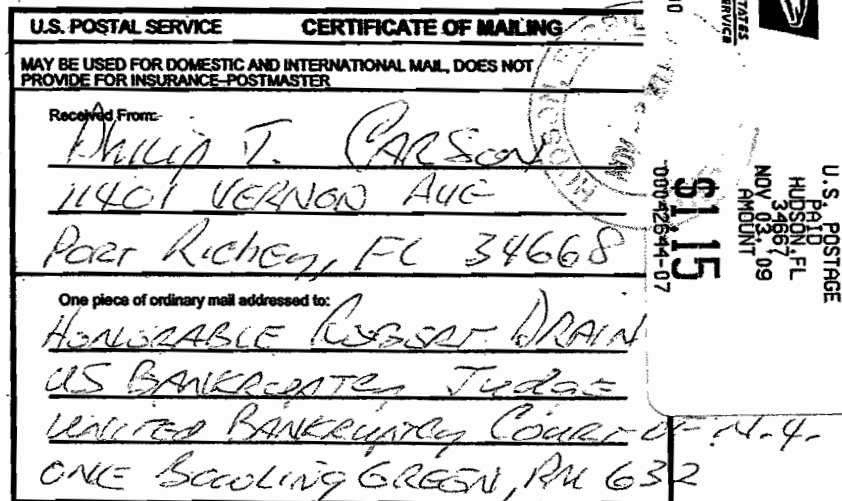 U.S. POSTAL SERVICE CERTIFICATE OF MAILING
MAY BE USED FOR DOMESTIC AND INTERNATIONAL MAIL, DOES NOT
PROVIDE FOR INSURANCE-POSTMASTER
Received From:
Philip T. CARSON
11401 VERNON AVE
Port Richey, FL 34668
One piece of ordinary mail addressed to:
HONORABLE ROBERT DRAIN
US BANKRUPTCY JUDGE
UNITED BANKRUPTCY COURT OF N.Y.
ONE BOWLING GREEN, RM 632
TATES
ERVICE
U.S. POSTAGE
PAID
HUDSON, FL
34667
NOV 03, 09
AMOUNT
$1.15
00042644-07